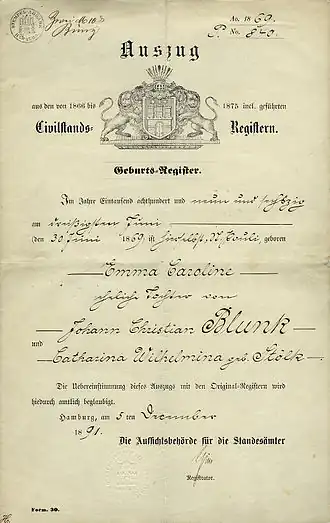 Ao. 1869.
P. No. 840.
Auszug
aus den von 1866 bis 1875 incl. geführten
Civilstands- Registern.
Geburts-Register.
Im Jahre Eintausend achthundert und neun und sechszig
am dreißigsten Juni
(den 30 Juni 1869 ist hierselbst, St. Pauli, geboren
Emma Caroline
ehelich Tochter von
Johann Christian Blunk
und
Catharina Wilhelmina geb. Stölk
Die Uebereinstimmung dieses Auszugs mit den Original-Registern wird
hiedurch amtlich beglaubigt.
Hamburg, am 5 ten December
1891.
Die Aufsichtsbehörde für die Standesämter
Registrator.
Form. 30.